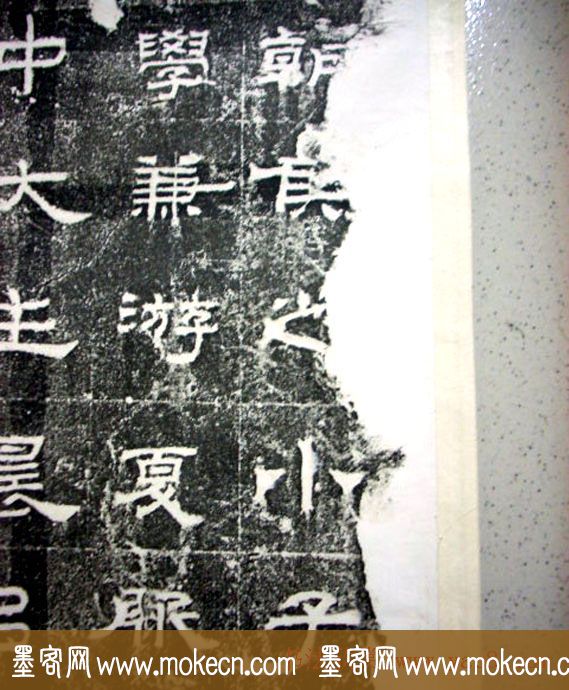 朝侯之小子
學兼游夏服
中大主晨
墨客网 www.mokecn.com 墨客网 www.mokecn.com